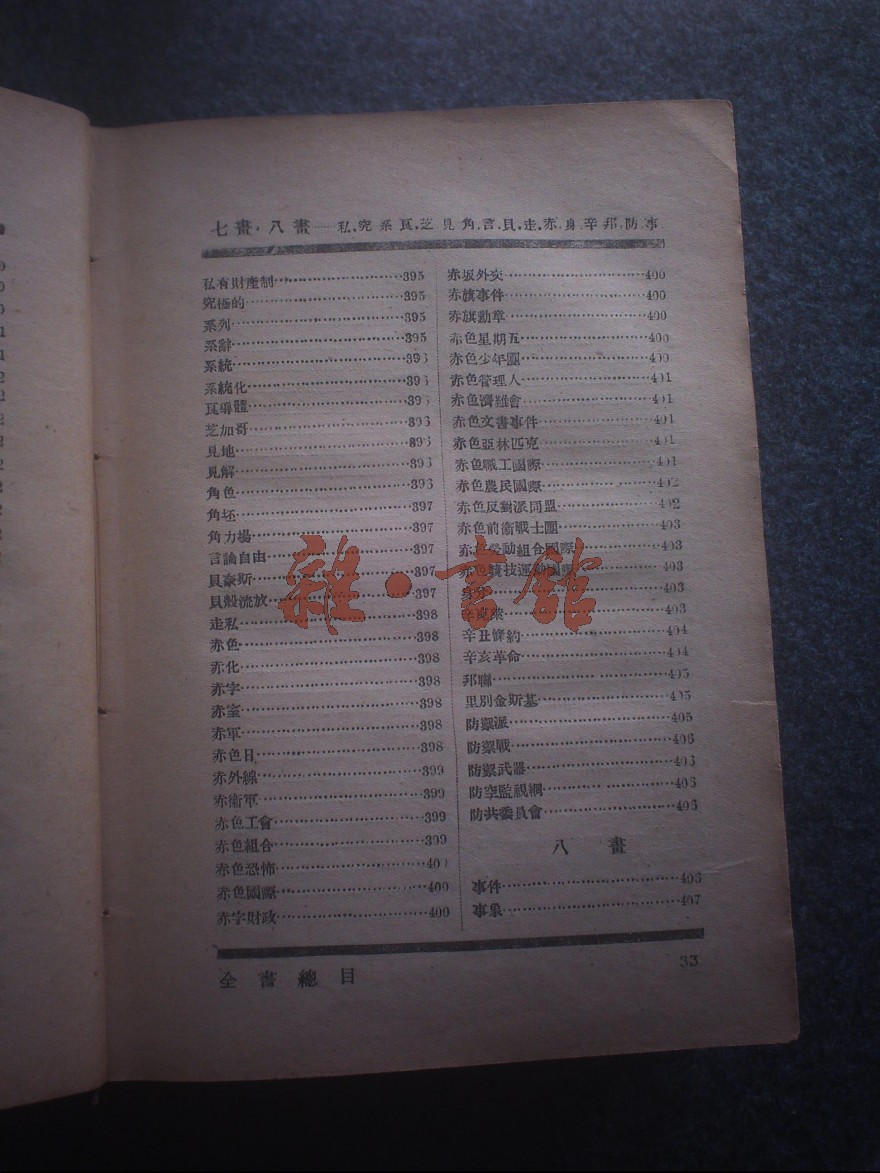 七畫・八畫——私,究,系,良,芝,見,角,言,貝,走,赤,身,辛,邦,防,事
私有財產制…395
究極的…395
系列…395
系辭…395
系統…396
系統化…396
良導體…396
芝加哥…396
見地…396
見解…396
角色…396
角坯…397
角力場…397
言論自由…397
貝豪斯…397
貝殼流放…397
走私…398
赤色…398
赤化…398
赤字…398
赤室…398
赤軍…398
赤色日…398
赤外線…399
赤衛軍…399
赤色工會…399
赤色組合…399
赤色恐怖…400
赤色國際…400
赤字財政…400
赤坂外交…400
赤旗事件…400
赤旗勳章…400
赤色星期五…400
赤色少年團…400
赤色管理人…401
赤色濟難會…401
赤色文書事件…401
赤色亞林匹克…401
赤色職工國際…401
赤色農民國際…402
赤色反對派同盟…402
赤色前衛戰士團…403
赤色勞動組合國際…403
赤色競技運動國際…403
身分…403
辛克萊…403
辛丑條約…404
辛亥革命…404
邦聯…405
里別金斯基…405
防禦派…405
防禦戰…406
防禦武器…406
防空監視網…406
防共委員會…406
八畫
事件…406
事象…407
全書總目
33
雜・书館